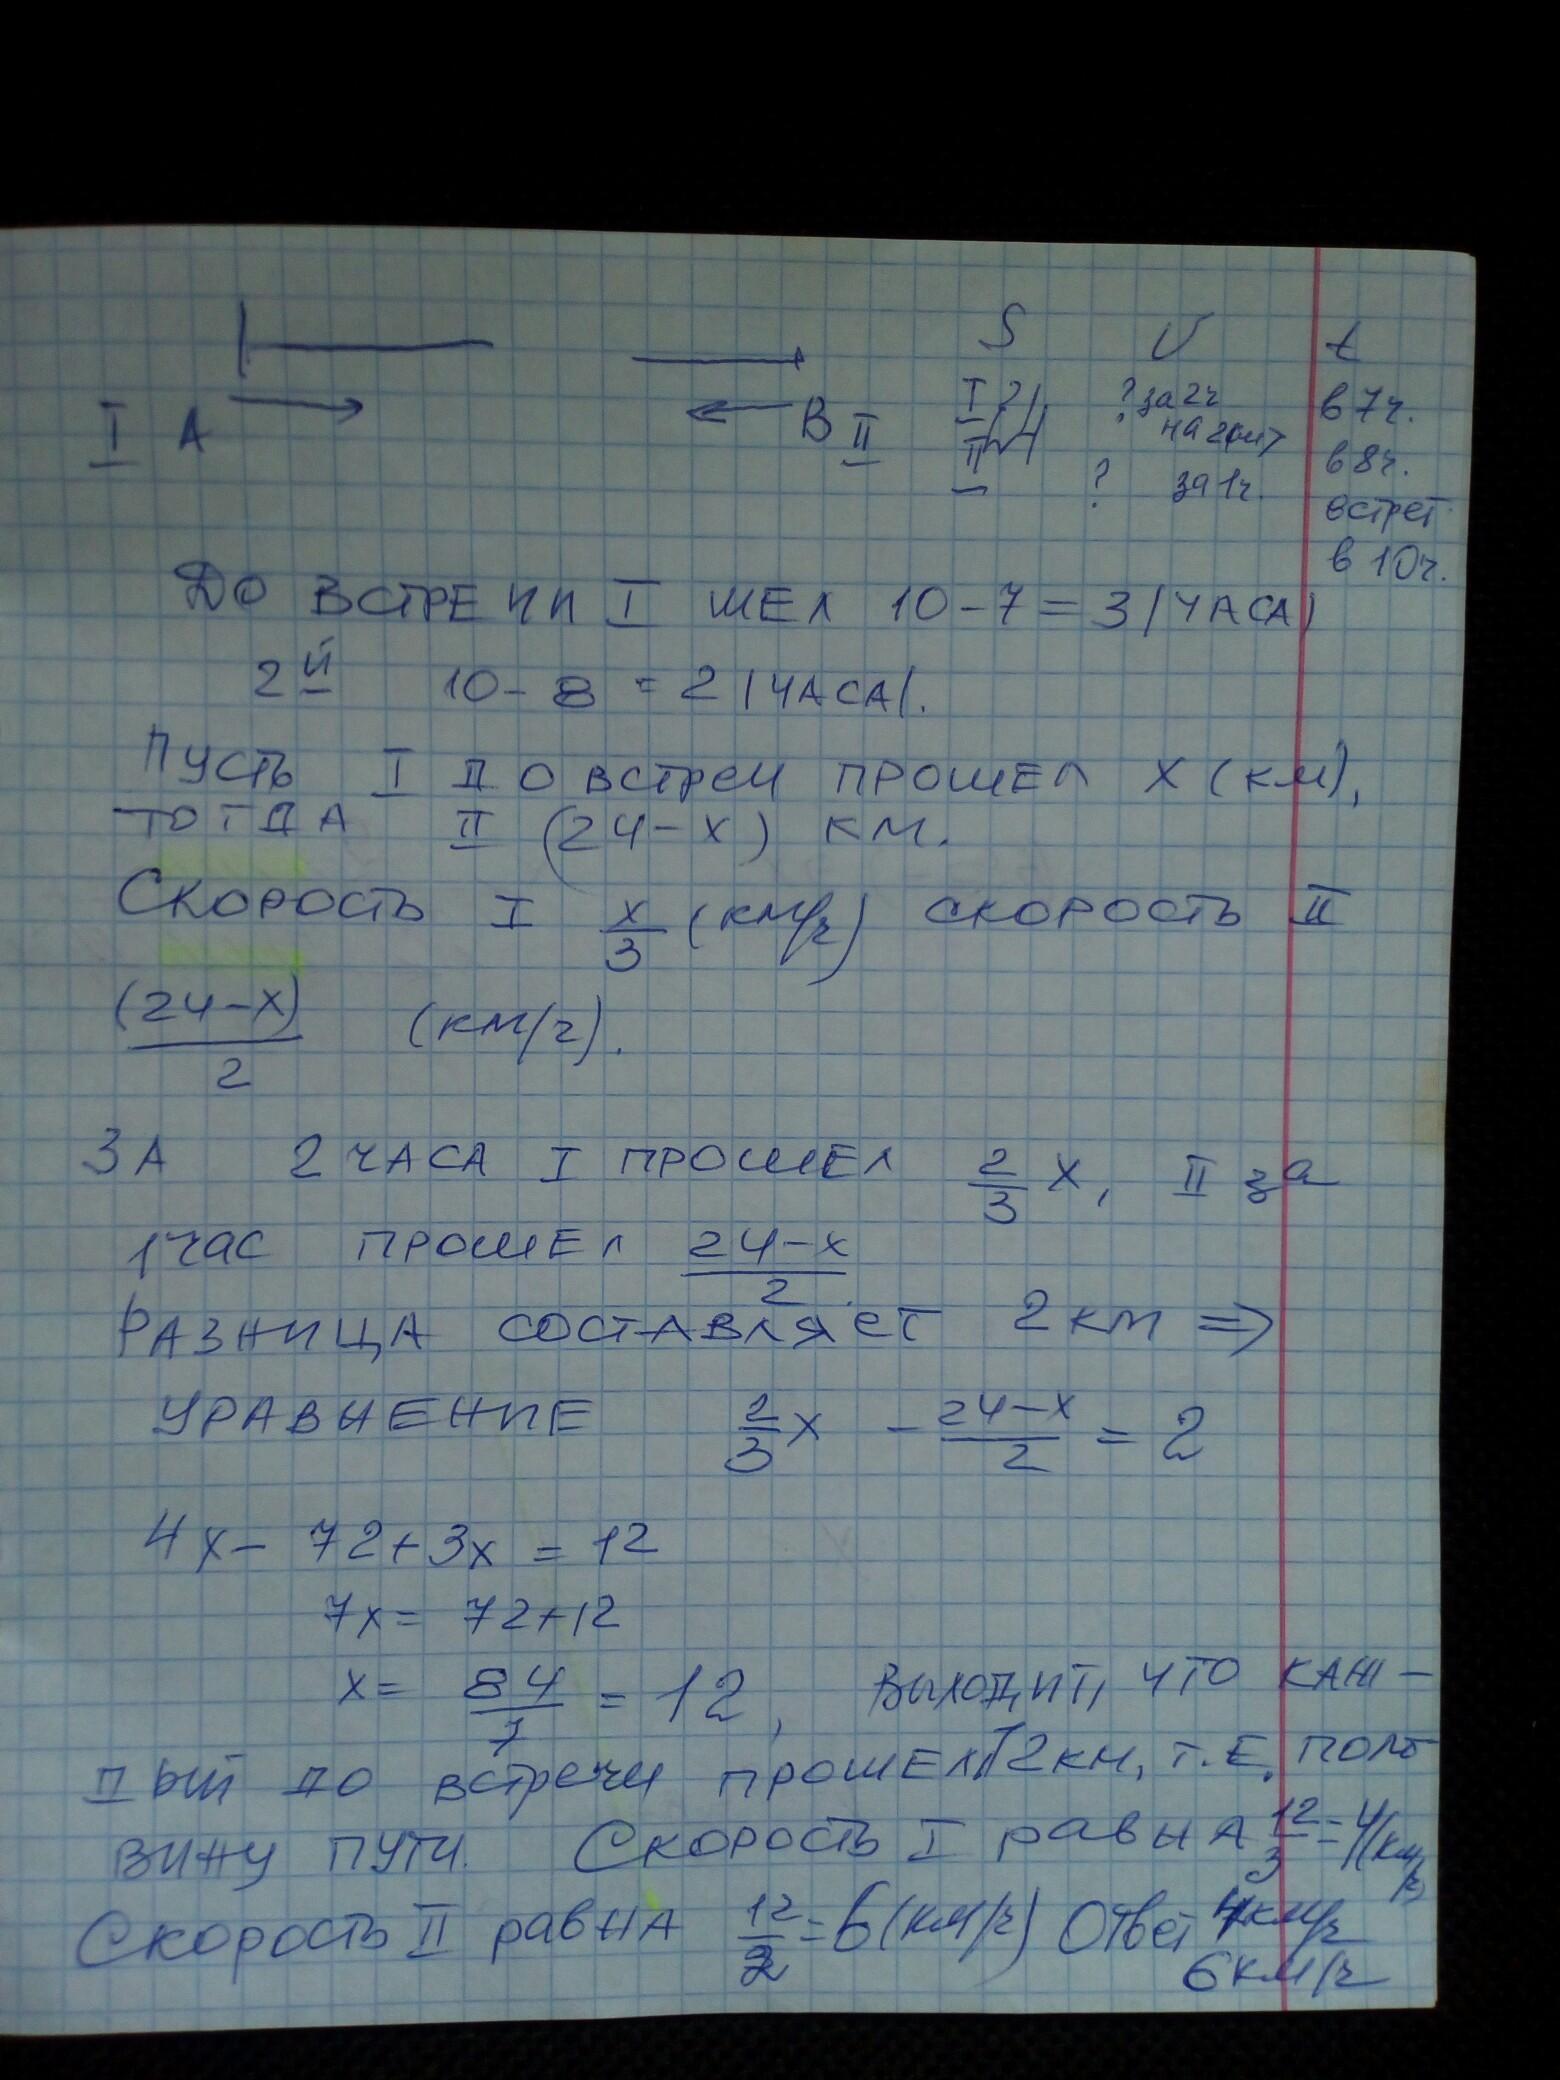 S V t
I A B II
I 24 ? за 2ч в 7ч.
на 2км>
II ? за 1ч. в 8ч.
встрет
в 10ч.
ДО ВСТРЕЧИ I ШЕЛ 10-7=3(ЧАСА)
2й 10-8=2(ЧАСА).
ПУСТЬ I ДО ВСТРЕЧ ПРОШЕЛ X (КМ),
ТОГДА II (24-X) КМ.
СКОРОСТЬ I x/3 (КМ/ч) СКОРОСТЬ II
(24-X)/2 (КМ/ч).
ЗА 2 ЧАСА I ПРОШЕЛ 2/3 X, II за
1 ЧАС ПРОШЕЛ 24-x/2.
РАЗНИЦА СОСТАВЛЯЕТ 2 КМ ⇒
УРАВНЕНИЕ 2/3 X - 24-x/2 = 2
4x - 72+3x = 12
7x = 72+12
x = 84/7 = 12, ВЫХОДИТ, ЧТО КАЖ-
ДЫЙ ДО ВСТРЕЧИ ПРОШЕЛ 12 КМ, Т.Е. ПОЛО
ВИНУ ПУТИ. СКОРОСТЬ I РАВНА 12/3=4(КМ/ч)
СКОРОСТЬ II РАВНА 12/2=6(КМ/ч) Ответ 4км/ч
6 КМ/ч